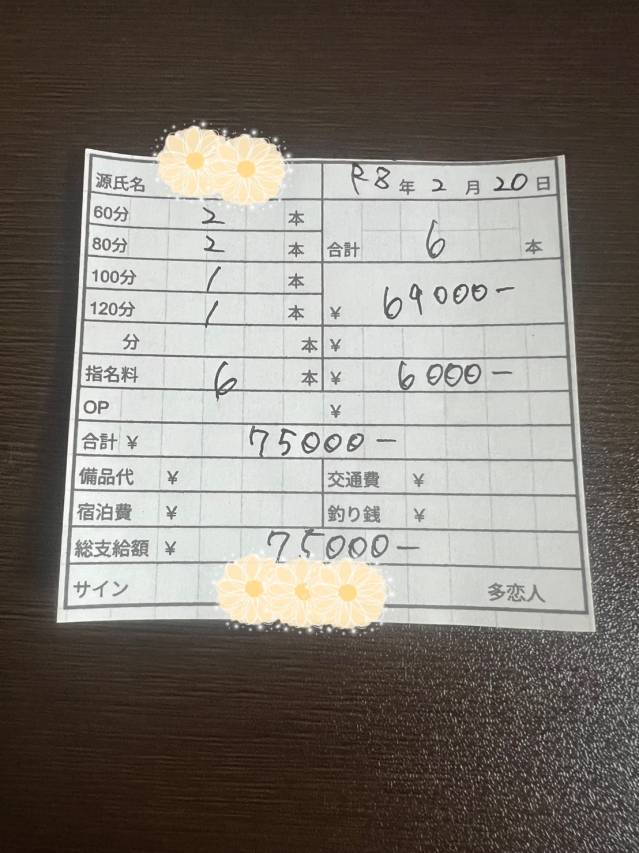 源氏名 R8年2月20日
60分 2 本
80分 2 本 合計 6 本
100分 1 本
120分 1 本 ¥ 69000-
分 本 ¥
指名料 6 本 ¥ 6000-
OP ¥
合計 ¥ 75000-
備品代 ¥ 交通費 ¥
宿泊費 ¥ 釣り銭 ¥
総支給額 ¥ 75000-
サイン 多恋人